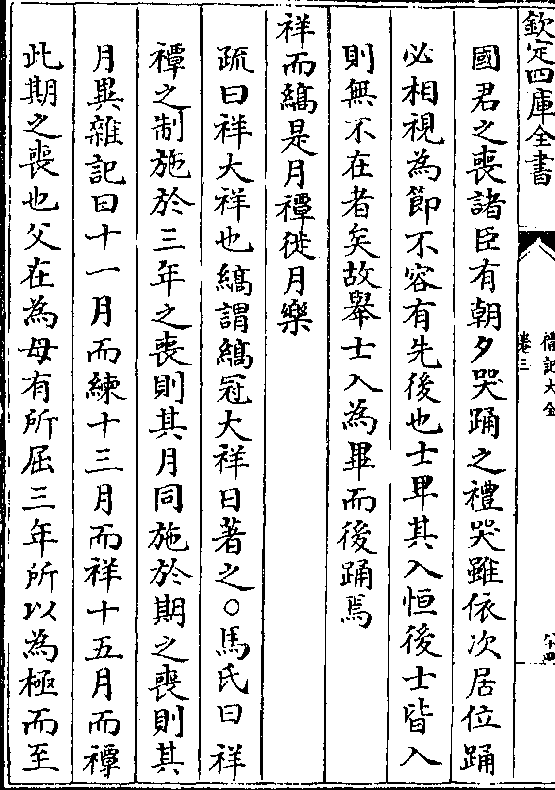 欽定四庫全書
禮記大全
卷三
國君之喪諸臣有朝夕哭踊之禮哭雖依次居位踊
必相視為節不容有先後也士卑其入恒後士皆入
則無不在者矣故舉士入為畢而後踊焉
祥而縞是月禫徙月樂
疏曰祥大祥也縞謂縞冠大祥日著之○馬氏曰祥
禫之制施於三年之喪則其月同施於期之喪則其
月異雜記曰十一月而練十三月而祥十五月而禫
此期之喪也父在為母有所屈三年所以為極而至